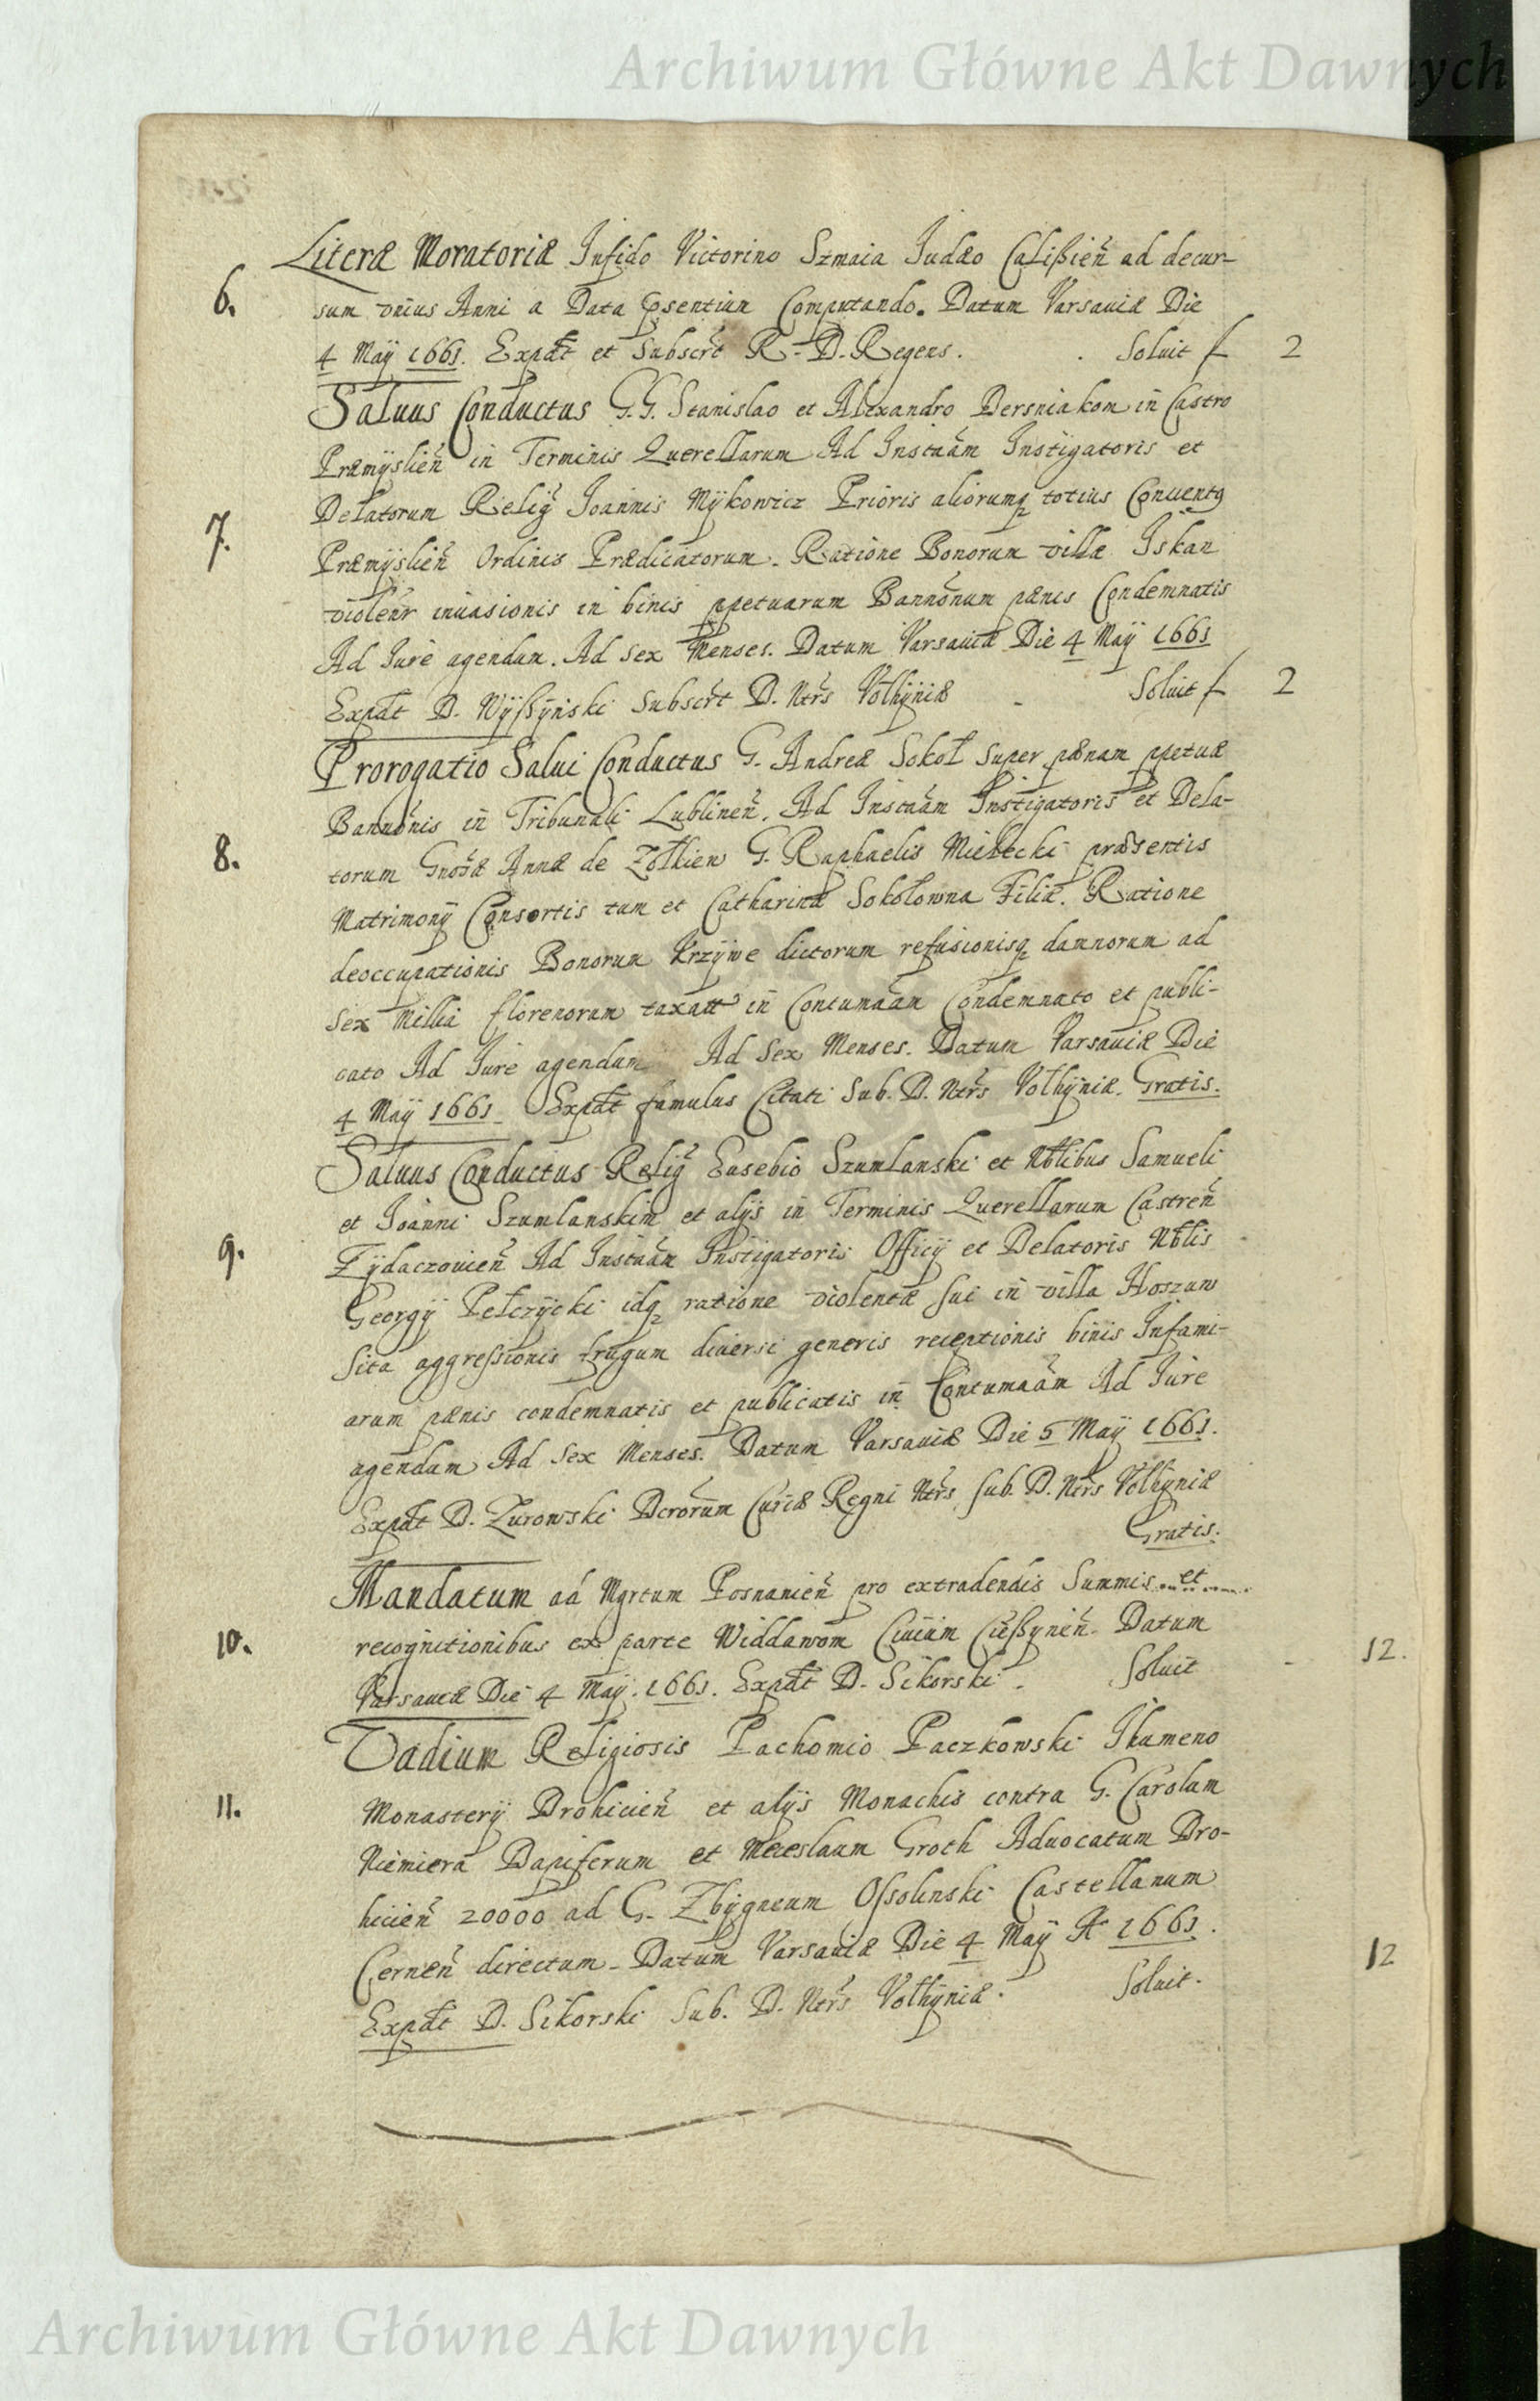 Archiwum Główne Akt Dawnych
Literæ Moratoriæ Infido Victorino Szmaia Judæo Calißien̄ ad decur-
6. sum vnius Anni a Data p̄sentium Computando. Datum Varsaviæ Die
4 Maÿ 1661. Expdt et Subscrt R. D. Regens. Soluit f 2
Saluus Conductus G.G. Stanislao et Alexandro Dersniakom in Castro
Præmÿslien̄ in Terminis Querellarum Ad Instnām Instigatoris et
Delatorum Relig Joannis Mÿkowicz Prioris aliorumq totius Conuentq
7. Præmÿslien̄ Ordinis Prædicatorum. Ratione Bonorum villæ Iskan
violenr inuasionis in binis ppetuarum Bannōnum pænis Condemnatis
Ad Jure agendum. Ad sex Menses. Datum Varsauiæ Die 4 Maÿ 1661
Expdt D. Wÿßÿnski Subscrt D. Ntrs Volhÿniæ Soluit f 2
Prorogatio Salui Conductus G. Andreæ Sokoł super pænam ppetuæ
Bannōnis in Tribunali Lublinen̄. Ad Instnām Instigatoris et Dela-
8. torum Gnosæ Annæ de Zołkiew G. Raphaelis Mielecki præsentis
Matrimonÿ Consortis tum et Catharinæ Sokołowna Filiæ. Ratione
deoccupationis Bonorum Krzÿwe dictorum refusionisq damnorum ad
sex Millia florenorum taxatt in Contumaām Condemnato et publi-
cato Ad Jure agendum Ad Sex Menses. Datum Varsauiæ Die
4 Maÿ 1661. Expdt famulus Citati Sub. D. Ntrs Volhÿniæ. Gratis.
Saluus Conductus Relig Eusebio Szumlanski et Nblibus Samueli
et Joanni Szumlanskim et alÿs in Terminis Querellarum Castren̄
9. Zÿdaczovien̄ Ad Instnām Instigatoris Officÿ et Delatoris Nblis
Georgÿ Pełczÿcki idq ratione violentæ sui in villa Hoszow
sita aggreſsionis frugum diuersi generis receptionis binis Infami-
arum pænis condemnatis et publicatis in Contumaām Ad Jure
agendum Ad Sex Menses. Datum Varsauiæ Die 5 Maÿ 1661.
Expdt D. Zurowski Dcrorum Curiæ Regni Ntrs Sub. D. Ntrs Volhÿniæ
Gratis.
Mandatum ad Mgrtum Posnanien̄ pro extradendis Summis et
10. recognitionibus ex parte Widdawom Ciuium Cießynen̄. Datum
Varsauiæ Die 4 Maÿ. 1661. Expdt D. Sikorski. Soluit 12.
Vadium Religiosis Pachomio Paczkowski Ihumeno
11. Monasterÿ Drohicien̄ et alÿs Monachis contra G. Carolum
Niemiera Dapiferum et Meieslaum Groth Aduocatum Dro-
hicien̄ 20000 ad G. Zbÿgneum Oſsolinski Castellanum
Cernen̄ directum. Datum Varsauiæ Die 4 Maÿ Aº 1661.
Expdt D. Sikorski Sub. D. Ntrs Volhÿniæ. Soluit. 12
Archiwum Główne Akt Dawnych